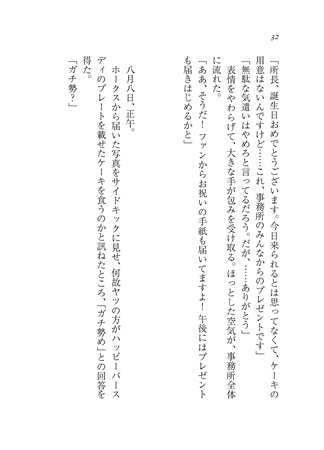 32
「所長、誕生日おめでとうございます。今日来られるとは思ってなくて、ケーキの
用意はないんですけど……これ、事務所のみんなからのプレゼントです」
「無駄な気遣いはやめろと言ってるだろう。だが、……ありがとう」
表情をやわらげて、大きな手が包みを受け取る。ほっとした空気が、事務所全体
に流れた。
「ああ、そうだ！ ファンからお祝いの手紙も届いてますよ！ 午後にはプレゼント
も届きはじめるかと」
八月八日、正午。
ホークスから届いた写真をサイドキックに見せ、何故ヤツの方がハッピーバース
ディのプレートを載せたケーキを食うのかと訊ねたところ、「ガチ勢め」との回答を
得た。
「ガチ勢？」